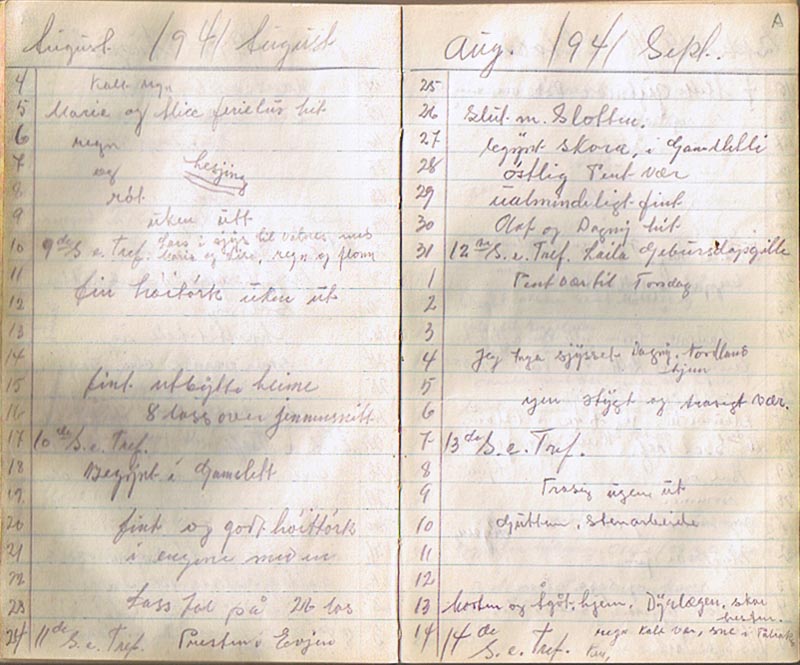 August 1941 August
4 Kalt regn
5 Marie og ferielus hit
6 regn
7 og hesjing
8 rót
9 uken ütt
10 9de S. e. Tref. Lars i til med
Marie og regn og flom
11
12 fin höitörk uken üt
13
14
15 fint utbytte heime
16 8 lass over jennemsnitt
17 10de S. e. Tref.
18 Begÿnt i Gamleft
19
20 fint og godt höittörk
21 i engene
22
23 Lass på 26 las
24 11de S. e. Tref. Presten i Evjen
A
Aug. 1941 Sept.
25
26 Slut m. Slotten.
27 begÿnt skora, i
28 östlig Pent vær
29 üalmindeligt fint
30 Olaf og Dagnÿ hit
31 12te S. e. Tref. Laila Gebursdagsgille
1 Pent vær til Torsdag
2
3
4 Jeg Inga Dagnÿ. Nordlaus
hjem
5
6 igjen stÿgt og trasigt vær.
7 13de S. e. Tref.
8
9 Trasig ugen üt
10 Gütten, stenarbeide
11
12
13 og hjem. Dÿrlægen. skar
hesten.
14 14de S. e. Tref. regn kalt vær, sne i